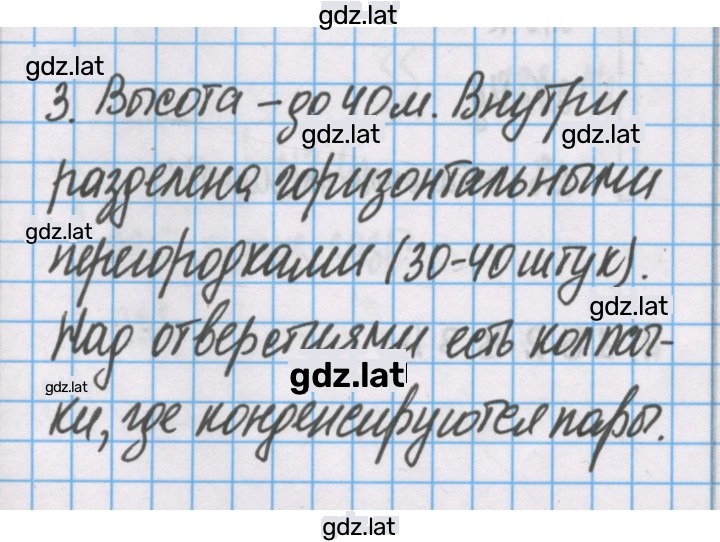 gdz.lat
gdz.lat
3. Высота – до 40 м. Внутри
gdz.lat
gdz.lat
разделена горизонтальными
gdz.lat
перегородками (30-40 штук).
gdz.lat
Над отверстиями есть колпач-
gdz.lat
gdz.lat
ки, где конденсируются пары.
gdz.lat